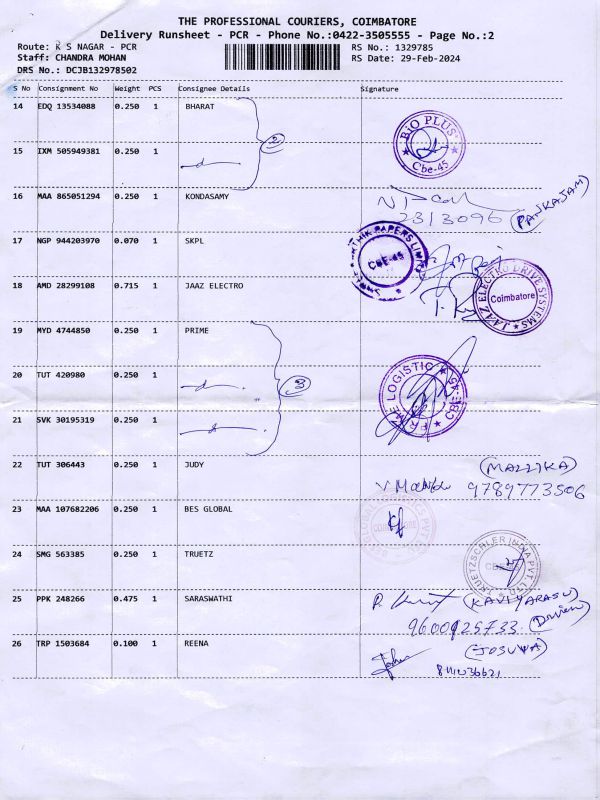 THE PROFESSIONAL COURIERS, COIMBATORE
Delivery Runsheet - PCR - Phone No.:0422-3505555 - Page No.:2
Route: K S NAGAR - PCR RS No.: 1329785
Staff: CHANDRA MOHAN RS Date: 29-Feb-2024
DRS No.: DCJB132978502
S No Consignment No Weight PCS Consignee Details Signature
14 EDQ 13534088 0.250 1 BHARAT
BIO PLUS Cbe-45
2
15 IXM 505949381 0.250 1
16 MAA 865051294 0.250 1 KONDASAMY
2313096 (PANKAJAM)
17 NGP 944203970 0.070 1 SKPL
PAPERS CBE-45
18 AMD 28299108 0.715 1 JAAZ ELECTRO
JAAZ ELECTRO DRIVE SYSTEMS Coimbatore
19 MYD 4744850 0.250 1 PRIME
20 TUT 420980 0.250 1
3
PRIME LOGISTIC CBE-45
21 SVK 30195319 0.250 1
22 TUT 306443 0.250 1 JUDY
(MALLIKA)
9789773506
23 MAA 107682206 0.250 1 BES GLOBAL
24 SMG 563385 0.250 1 TRUETZ
TRUETZSCHLER INDIA PVT. LTD
25 PPK 248266 0.475 1 SARASWATHI
(KAVIYARASU)
9600925733
26 TRP 1503684 0.100 1 REENA
(JOSUWA)